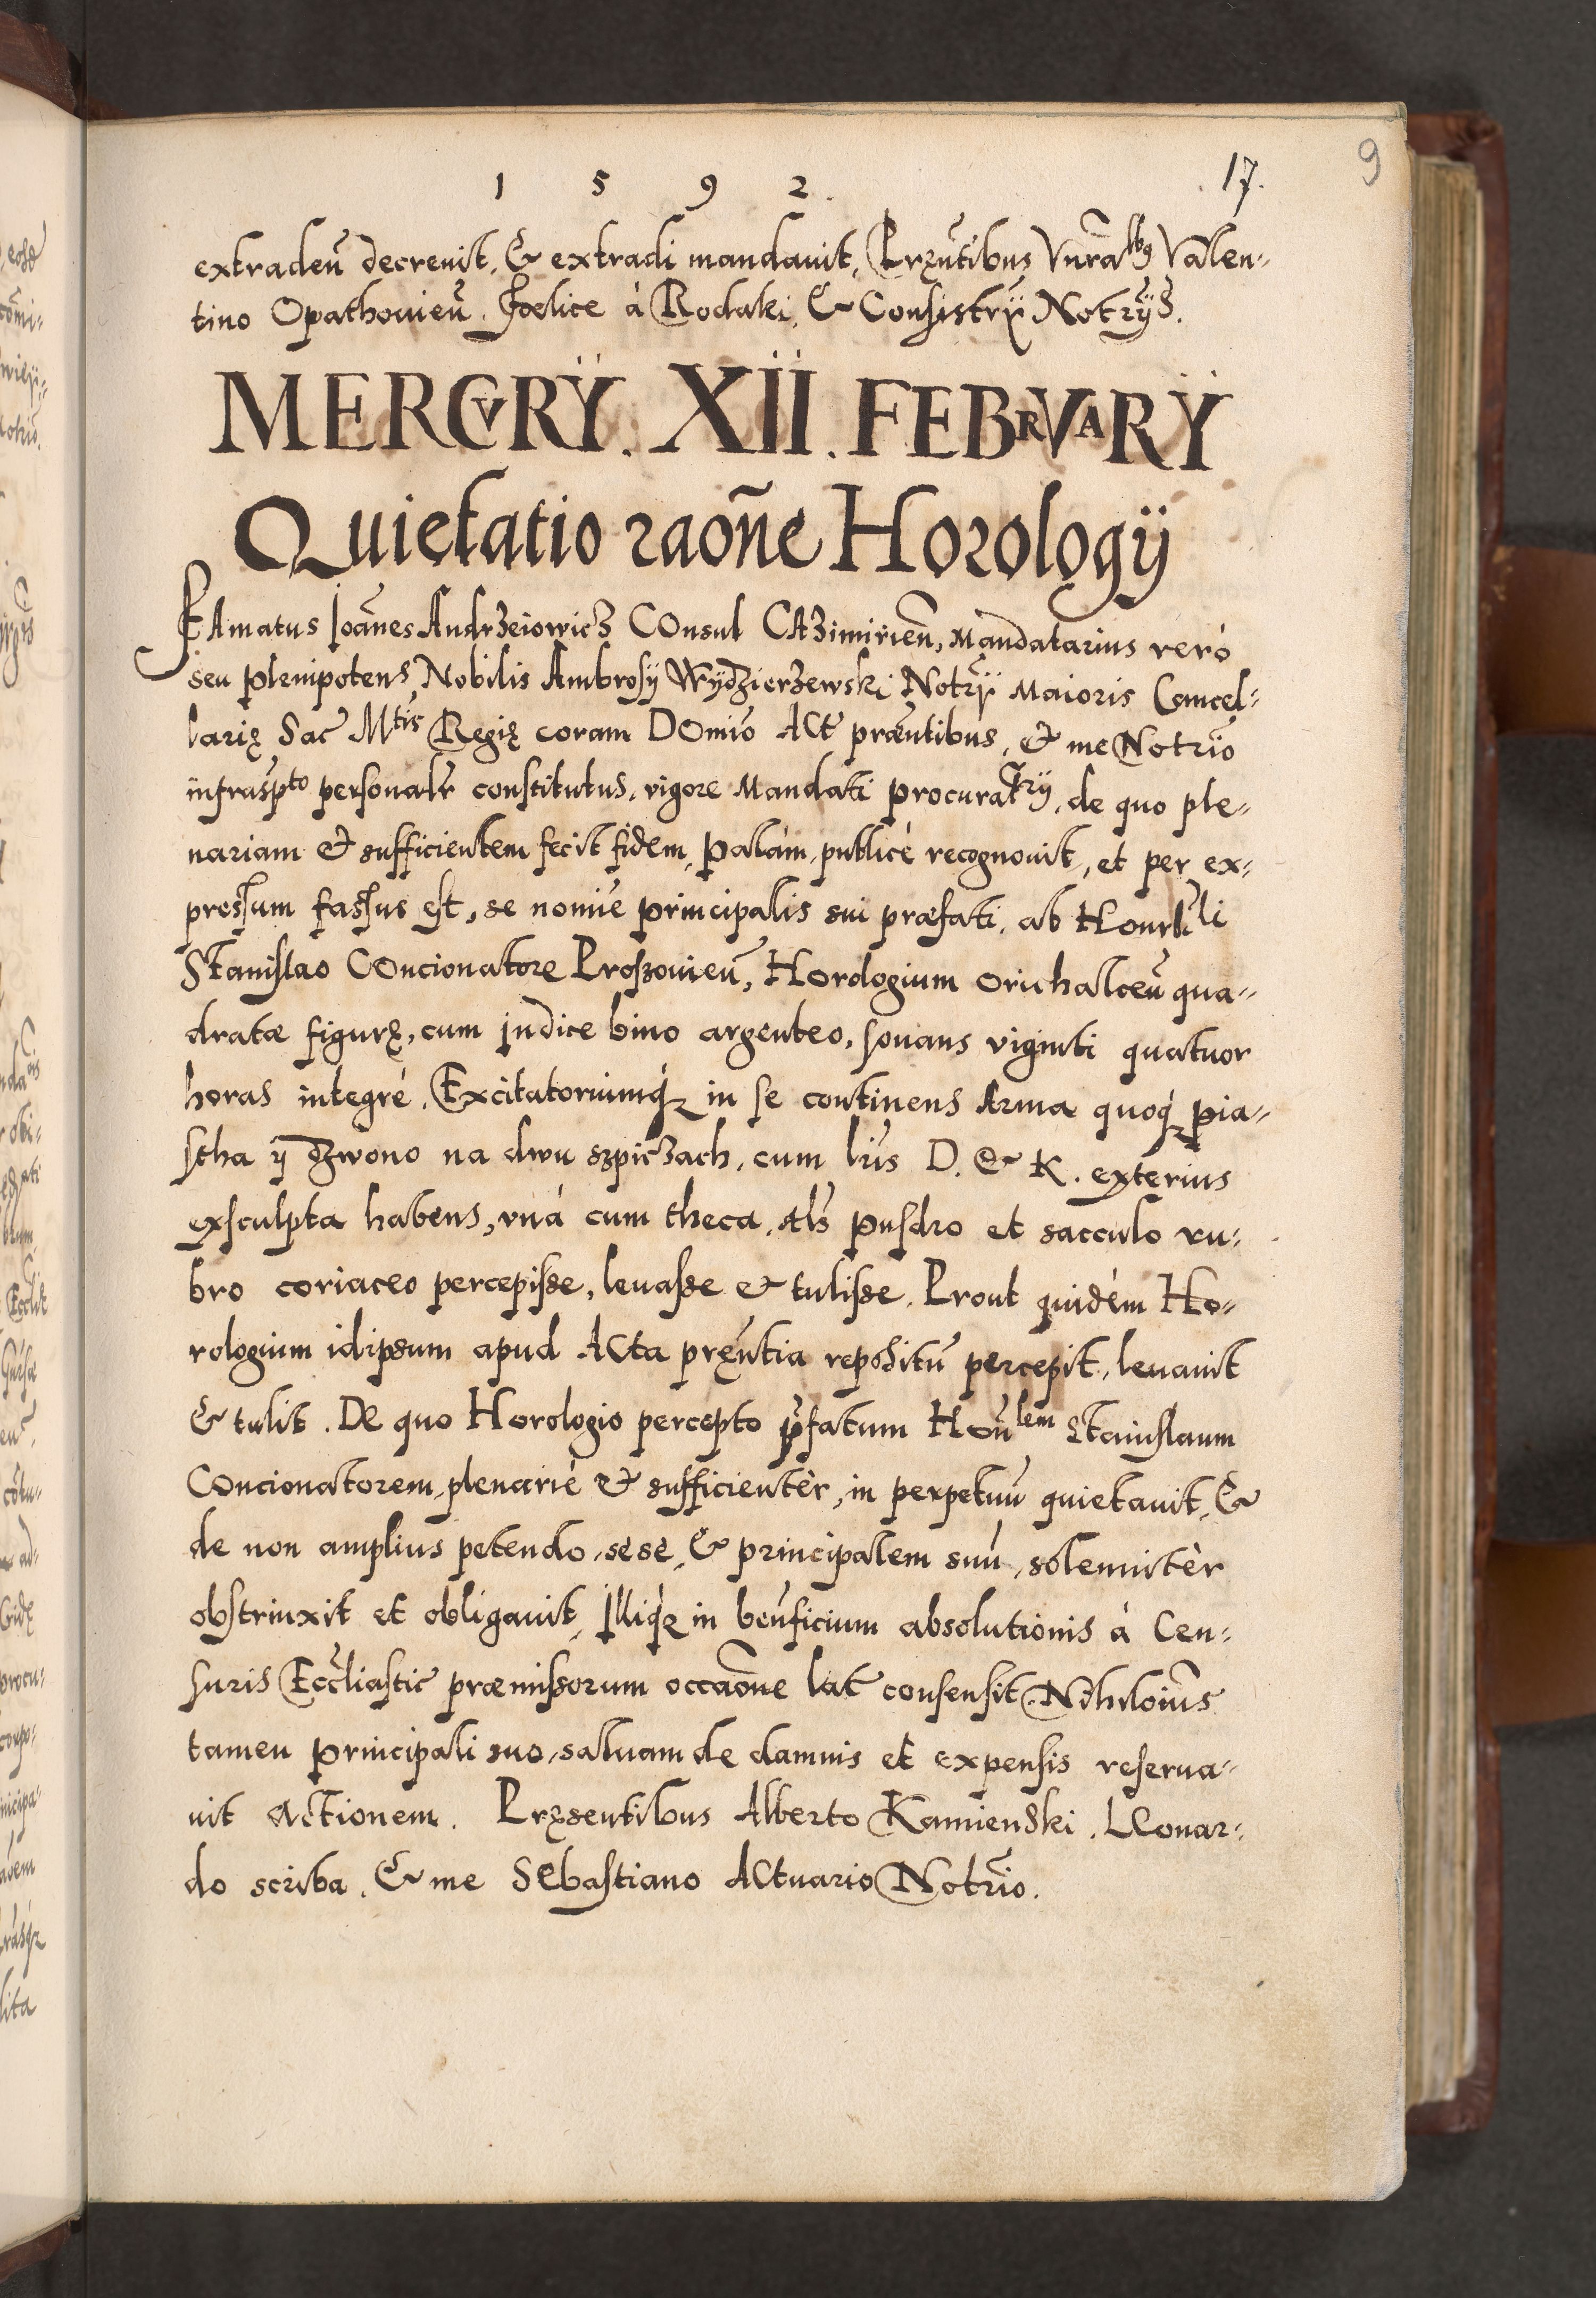 1 5 9 2. 17. 9
extradeñ decrevit, & extradi mandavit, Pręntibus Vnrãlibus Valen-
tino Opathovieñ. Fœlice à Rodaki, & Consistrÿ Notrÿs.
MERCVRŸ. XII. FEBRVARŸ
Quietatio raõne Horologÿ
FAmatus Ioãnes Andrzeiowicz COnsul CAzimirieñ, Mandatarius verò
seu plenipotens, Nobilis Ambrosÿ Wÿdzierzewski Notrÿ Maioris Cancel-
larię Sac Mtis Regię coram DOmĩo Act præntibus, & me Notrĩo
infrasp̃to personalr constitutus, vigore Mandati procuratrÿ, de quo ple-
nariam & sufficientem fecit fidem, palàm, publicè recognovit, et per ex-
pressum fassus est, se nomĩe principalis sui præfati, ab Honrbili
Stanislao COncionatore Proszovieñ, Horologium orichalceũ qua-
dratæ figurę, cum indice bino argenteo, sonans viginti quatuor
horas integrè, Excitatoriumq́ in se continens Arma quoq́ pia-
stha ÿ dzwono na dwu szpiczach, cum lr̃is D. & K. exterius
exsculpta habens, vnà cum theca, als pusdro et sacculo ru-
bro coriaceo percepisse, levasse & tulisse. Prout quidèm Ho-
rologium idipsum apud Acta pręntia repositũ percepit, levavit
& tulit. De quo Horologio percepto p̃fatum Honlem Stanislaum
COncionatorem, plenariè & sufficientèr, in perpetuũ quietavit, &
de non amplius petendo, sese, & principalem suũ, solennitèr
obstrinxit et obligavit, Illiq́ in beñficium absolutionis à Cen-
suris Eccliastic præmissorum occaõne lat consensit. Nihiloĩus
tamen principali suo, salvam de damnis et expensis reserva-
vit Actionem. Pręsentibus Alberto Kamienski. LEonar-
do scriba. & me SEbastiano Actuario Notrĩo.